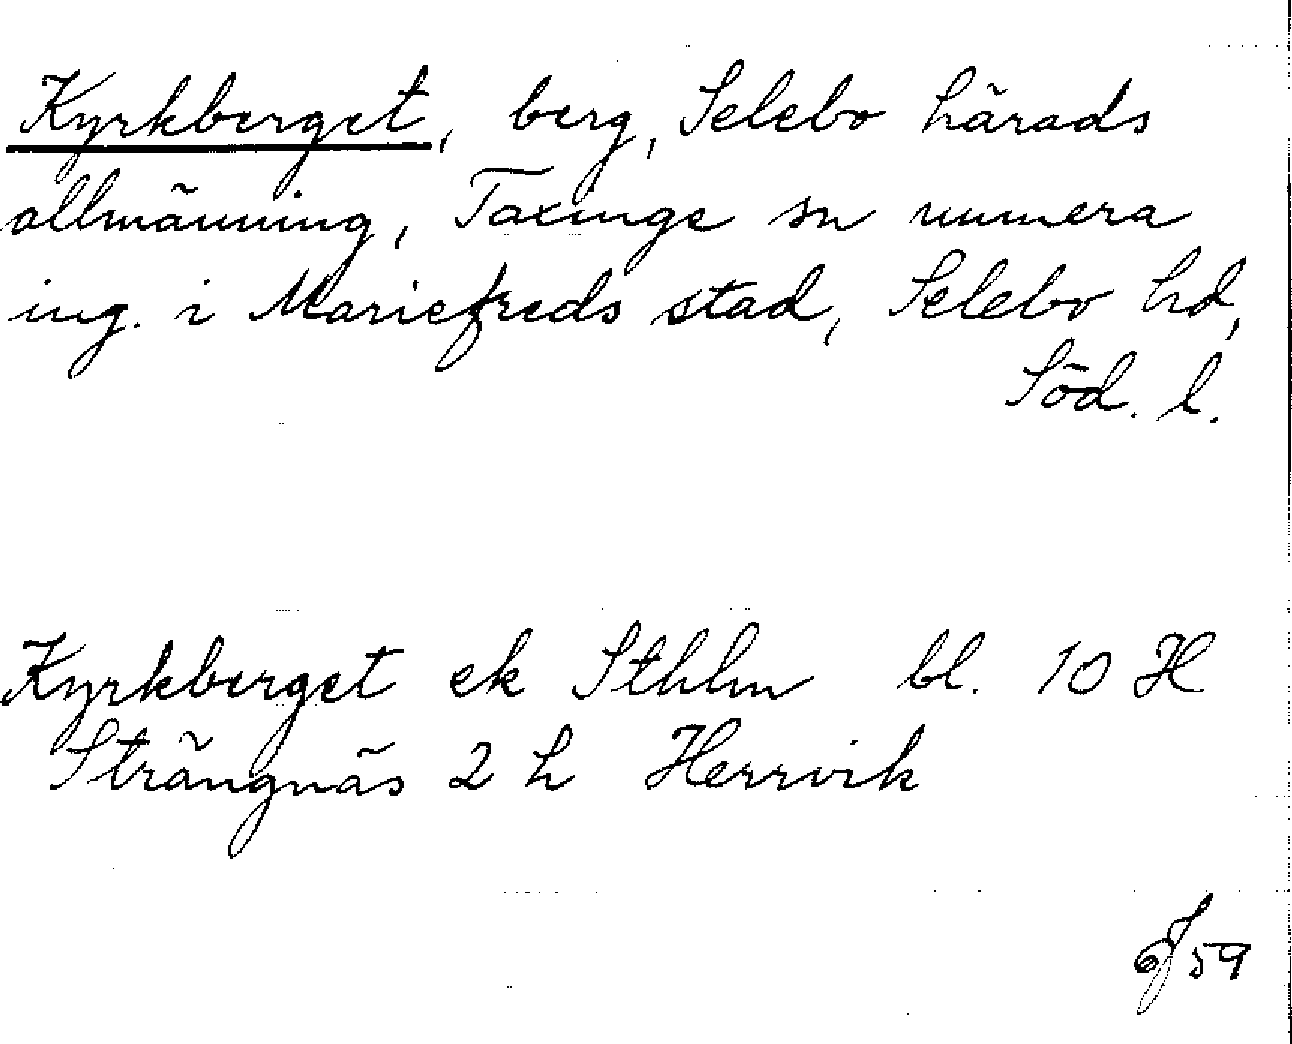 Kyrkberget, berg, Selebo härads
allmänning, Taxinge sn numera
ing. i Mariefreds stad, Selebo hd,
Söd. l.
Kyrkberget ek Sthlm bl. 10 H
Strängnäs 2 h Herrvik
59